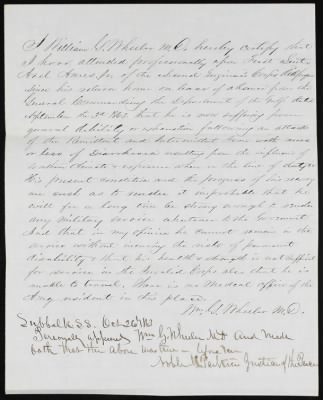 I William G. Wheeler M.D. hereby certify that
I have attended professionally upon First Lieut
of the Engineers Corps
since his return home on leave of absence from the
General Commanding the Department of the Gulf dated
September the 3d 1863 that he is now suffering from
general debility or exhaustion following an attack
of the Remittent and Intermittent fever with more
or less of Diarrhoea resulting from the influence of
while in the line of duty
His present condition and the progress of his recovery
are such as to render it improbable that he
will for a long time be strong enough to render
any military service whatever to the Government
And that in my opinion he cannot remain in the
service without incurring the risk of permanent
disability & that his health & strength is not sufficient
for service in the Invalid Corps also that he is
unable to travel. There is no Medical officer of the
Army resident in this place.
Wm. G. Wheeler M.D.
Suffolk S.S. Oct 26
Personally appeared Wm G Wheeler M.D. and made
oath that the above was true — before me
Justice of the Peace